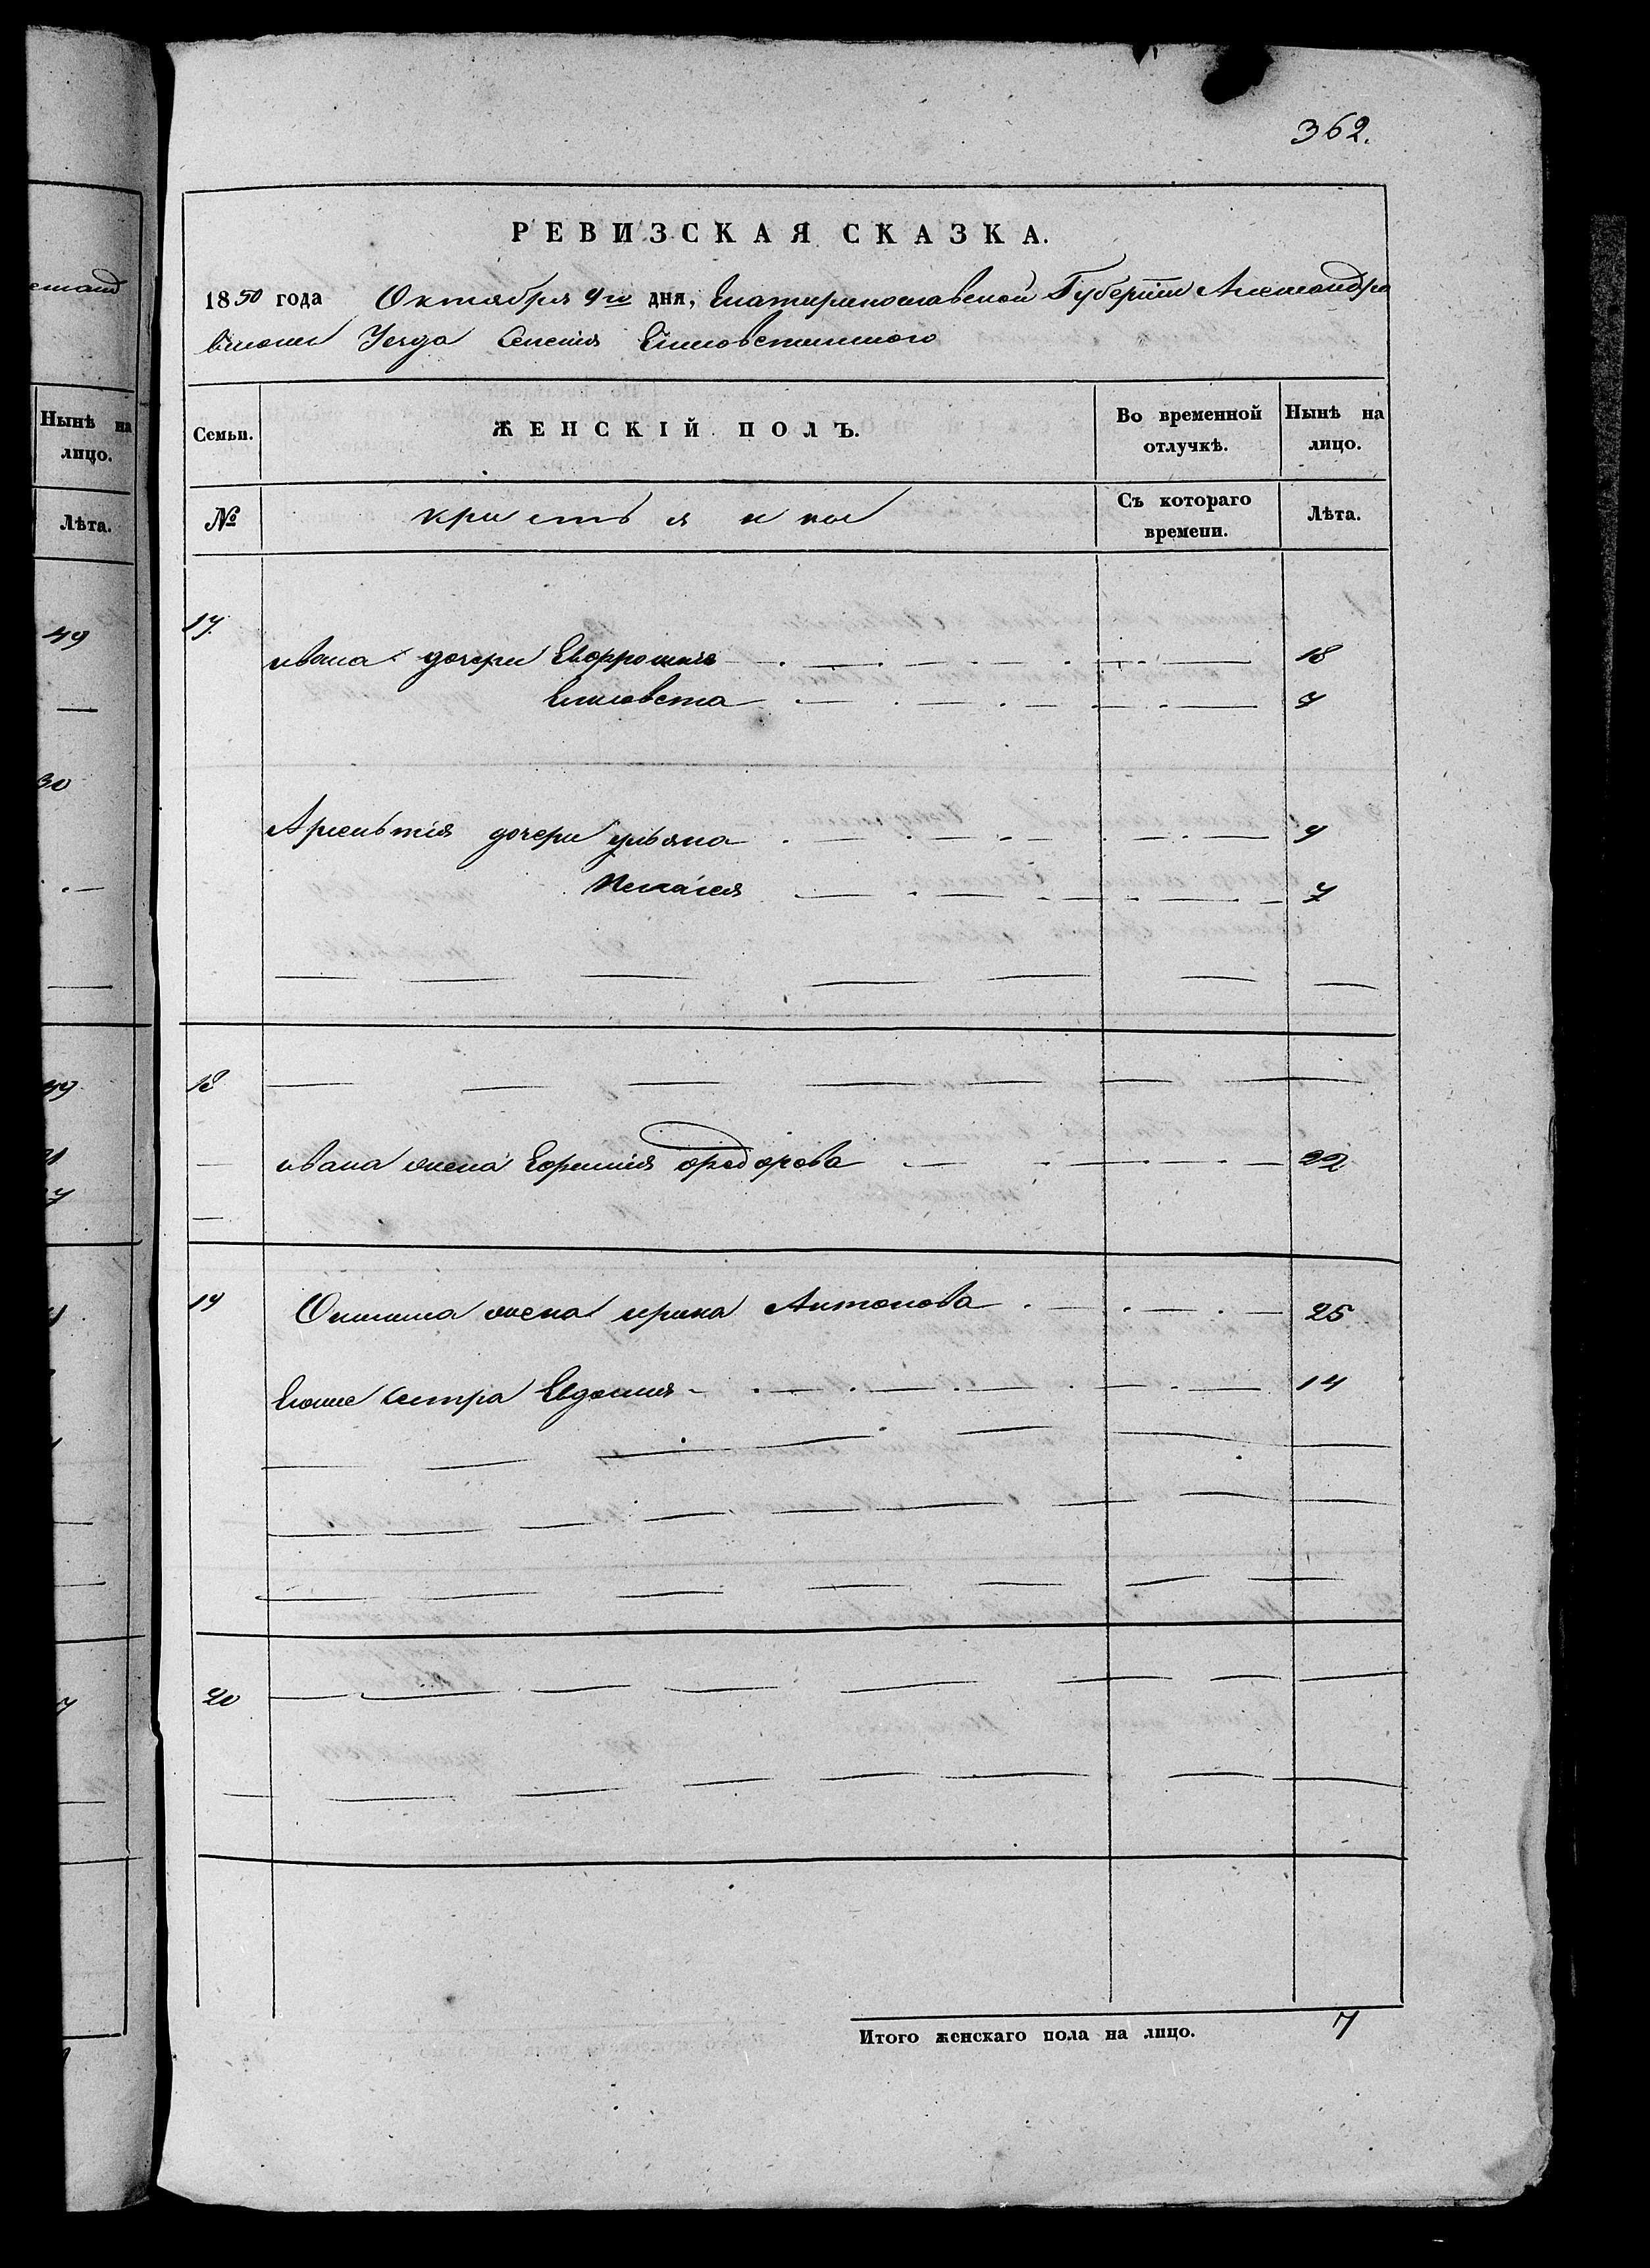 362.
РЕВИЗСКАЯ СКАЗКА.
1850 года Октября 9го дня, Екатиринославской Губернии Александро
вскаго Уезда Селения Елисоветинского
Семьи.
ЖЕНСКІЙ ПОЛЪ.
Во временной отлучкѣ.
Нынѣ на лицо.
№
кристьянки
Съ котораго времени.
Лѣта.
17.
ивана дочери Евфросинія 18
Елисовета 7
Арсеньтія дочери ульяна 9
Пелагея 7
18
ивана жена Ефимия федорова 22
19
жена ирина Антонова 25
Егоже сестра Евдокия 14
20
Итого женскаго пола на лицо. 7
Нынѣ на лицо.
Лѣта.
49
30